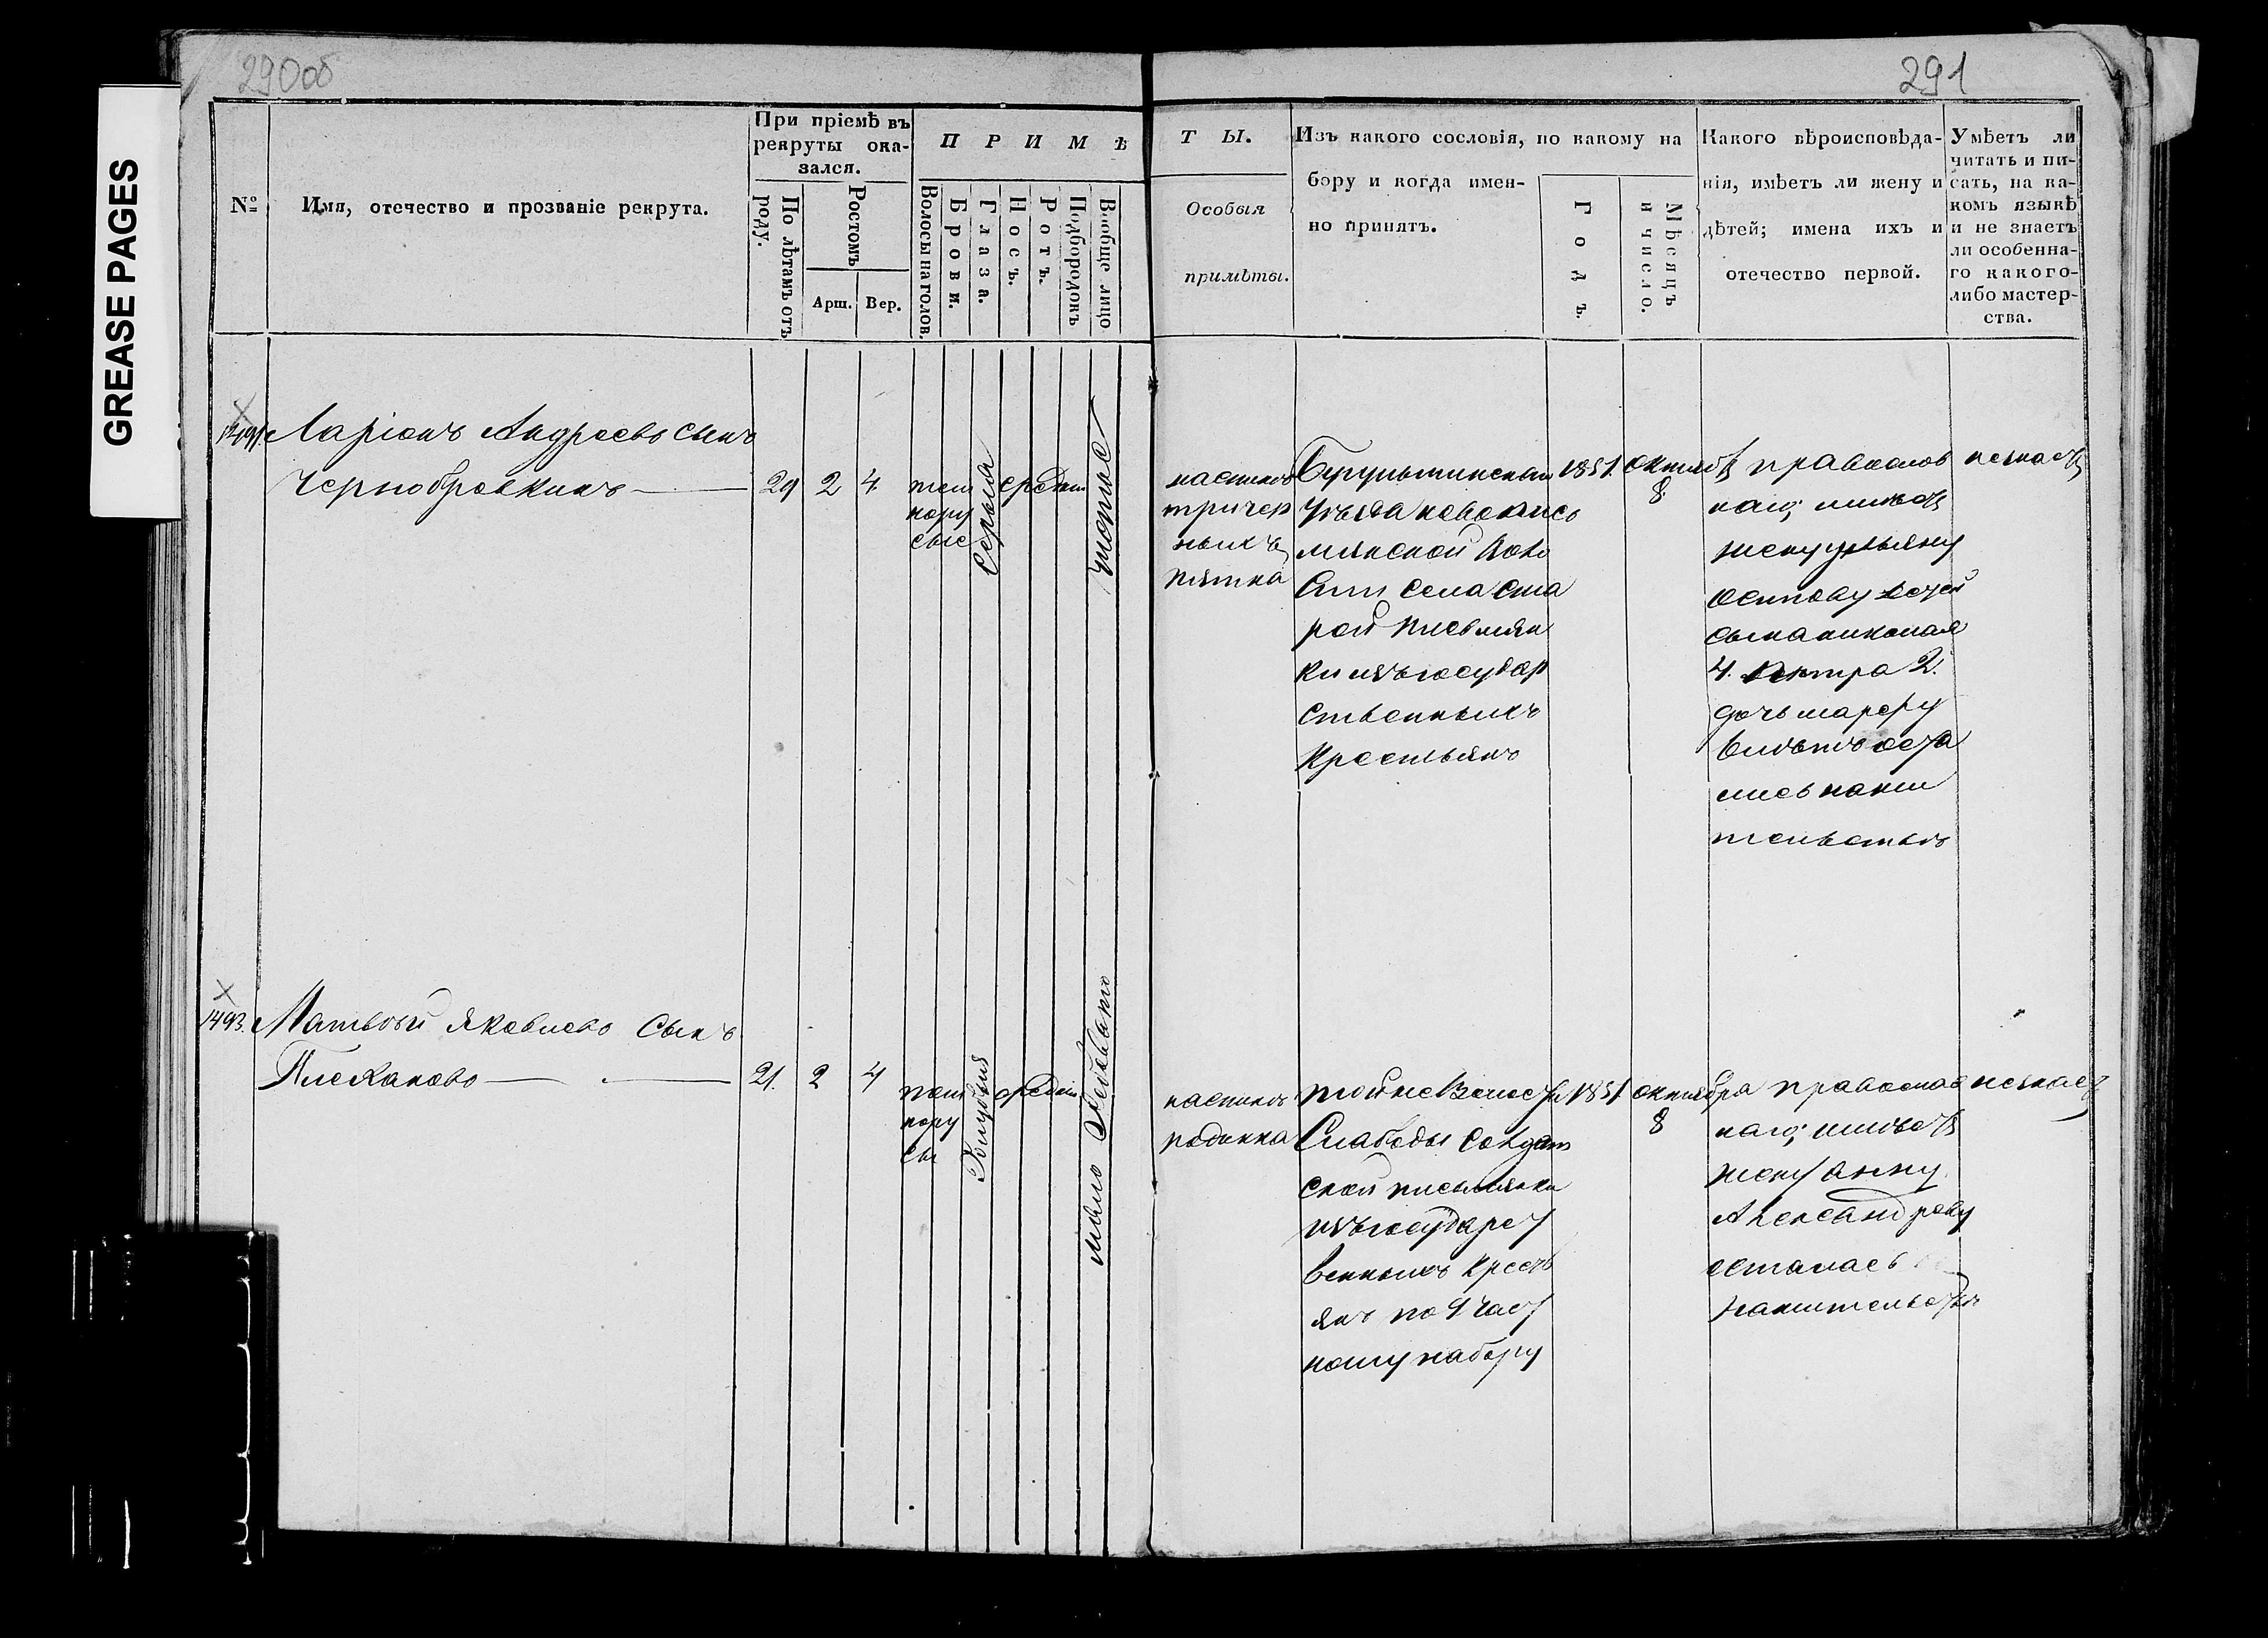 290об
291
GREASE PAGES
№
Имя, отечество и прозваніе рекрута.
При пріемѣ въ
рекруты ока-
зался.
По лѣтамъ отъ
роду.
Ростомъ
Арш.
Вер.
ПРИМѢ
Волосы на голов.
Брови.
Глаза.
Носъ.
Ротъ.
Подбородокъ
Вообще лицо
ТЫ.
Особыя
примѣты.
Изъ какого сословія, по какому на
бору и когда имен-
но принятъ.
Годъ.
Мѣсяцъ
и число.
Какого вѣроисповѣда-
нія, имѣетъ ли жену и
дѣтей; имена ихъ и
отечество первой.
Умѣетъ ли
читать и пи-
сать, на ка-
комъ языкѣ
и не знаетъ
ли особенна-
го какого-
либо мастер-
ства.
Ларіонъ Андреевъ сынъ
Чернобровкинъ
29 2 4
тем
нору
сые
серыя
средн
чистое
наспине
три чер
ныхъ
пятна
Бугульминскаго
уѣзда новописм
мянской воло
сти села Ста
рой Письмян
ки изъ государ
ственныхъ
Крестьянъ
1851
октяб
8
православ
наго, имѣетъ
жену ульяну
осипову детей
сына николая
4. петра 2.
дочь марфу
вместе оста
лись нажи
тельстве
незнаетъ
1493.
Матвей Яковлевъ Сынъ
Плехановъ
21. 2 4
тем
нору
сы
Голубыя
средн
мало рябовато
наспине
родинка
той же волости
Слабоды Солдат
ской письмянки
изъ государст
венныхъ Кресть
янъ по 9 част
ному набору
1851
октября
8
православ
наго, имеетъ
жену анну
Александрову
осталась
нажительстве
незнаетъ